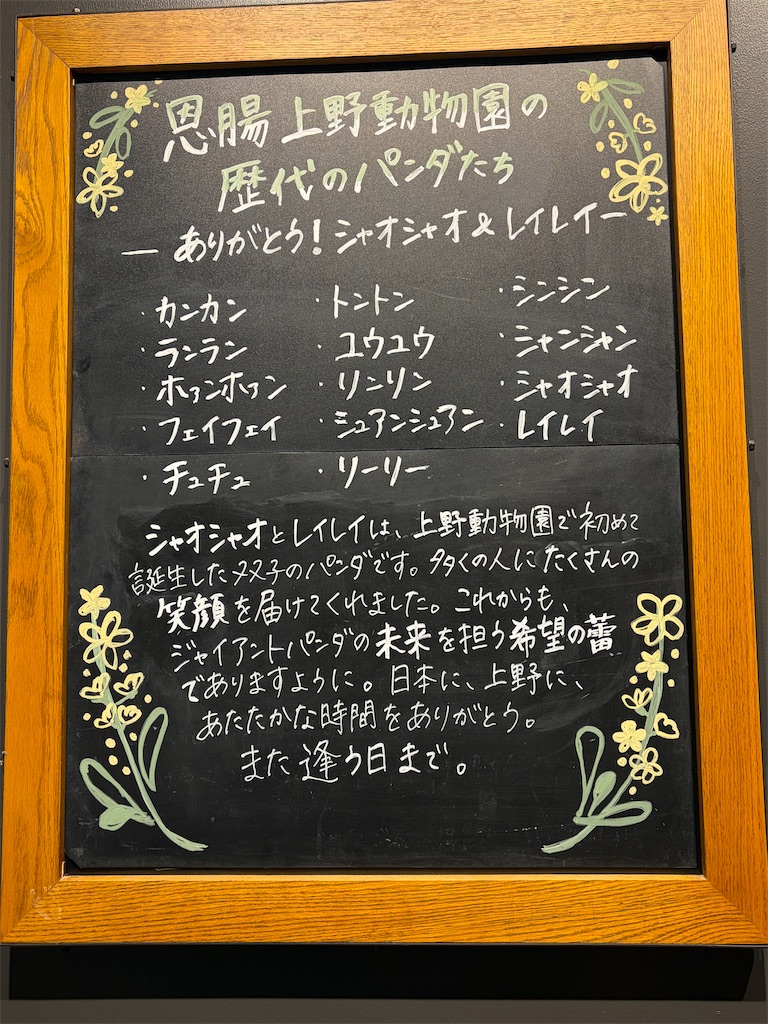 恩賜上野動物園の
歴代のパンダたち
ー ありがとう！シャオシャオ&レイレイー
・カンカン ・トントン ・シンシン
・ランラン ・ユウユウ ・シャンシャン
・ホァンホァン ・リンリン ・シャオシャオ
・フェイフェイ ・シュアンシュアン ・レイレイ
・チュチュ ・リーリー
シャオシャオとレイレイは、上野動物園で初めて
誕生した双子のパンダです。多くの人にたくさんの
笑顔を届けてくれました。これからも、
ジャイアントパンダの未来を担う希望の蕾
でありますように。日本に、上野に、
あたたかな時間をありがとう。
また逢う日まで。